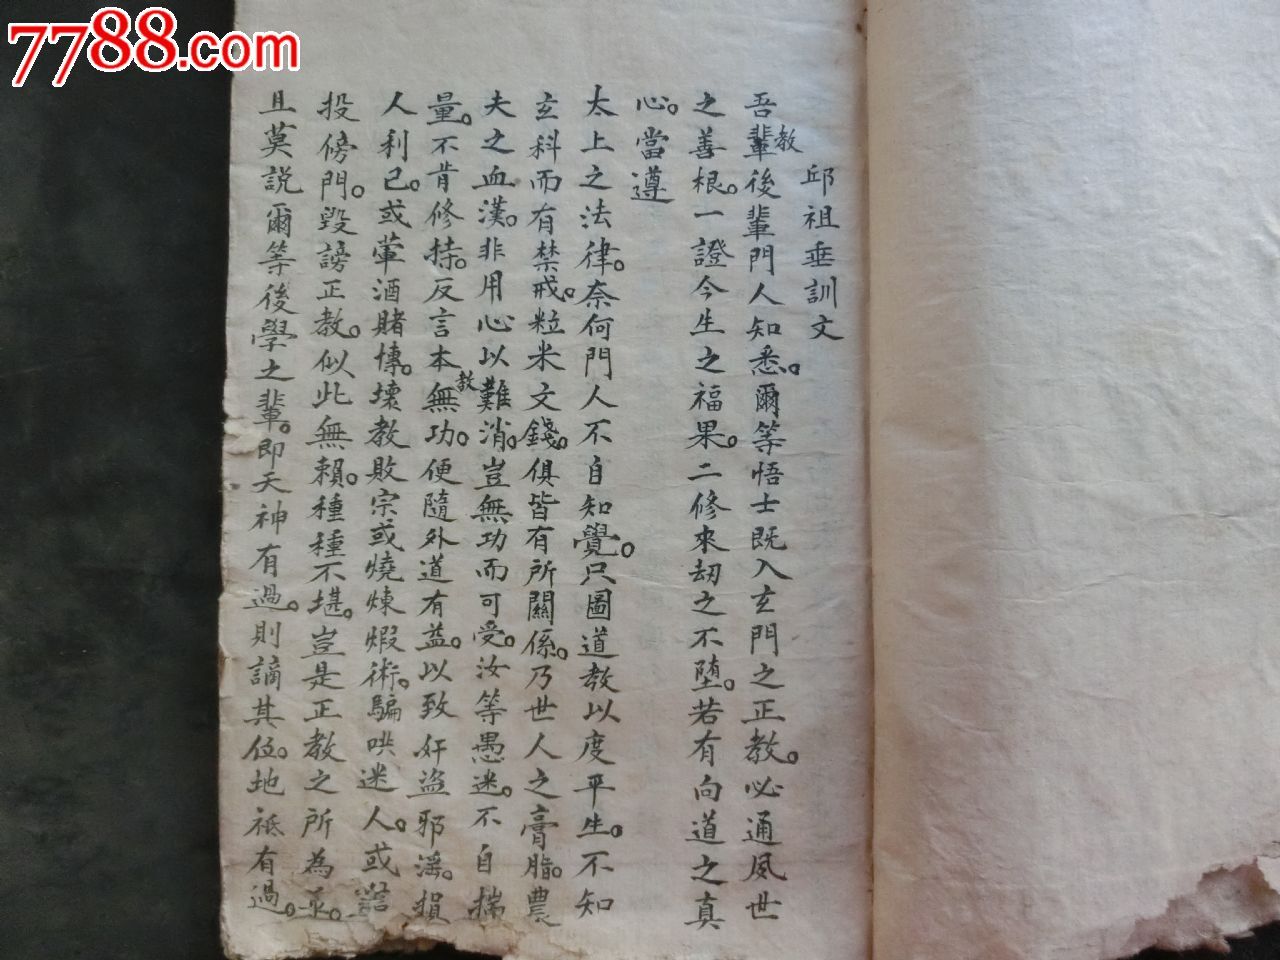 7788.com
邱祖垂訓文
吾教輩後輩門人知悉。爾等悟士既入玄門之正教。必通夙世
之善根。一證今生之福果。二修來劫之不墮。若有向道之真
心。當遵
太上之法律。奈何門人不自知覺。只圖道教以度平生。不知
玄科而有禁戒。粒米文錢。俱皆有所關係。乃世人之膏脂。農
夫之血漢。非用心以難消。豈無功而可受。汝等愚迷。不自揣
量。不肯修持。反言本教無功。便隨外道有益。以致奸盜邪淫。損
人利己。或葷酒賭愽。壞教敗宗或燒煉煆術。騙哄迷人。或
投傍門。毀謗正教。似此無賴。種種不堪。豈是正教之所為
且莫説爾等後學之輩。即天神有過。則謫其位。地祗有過。